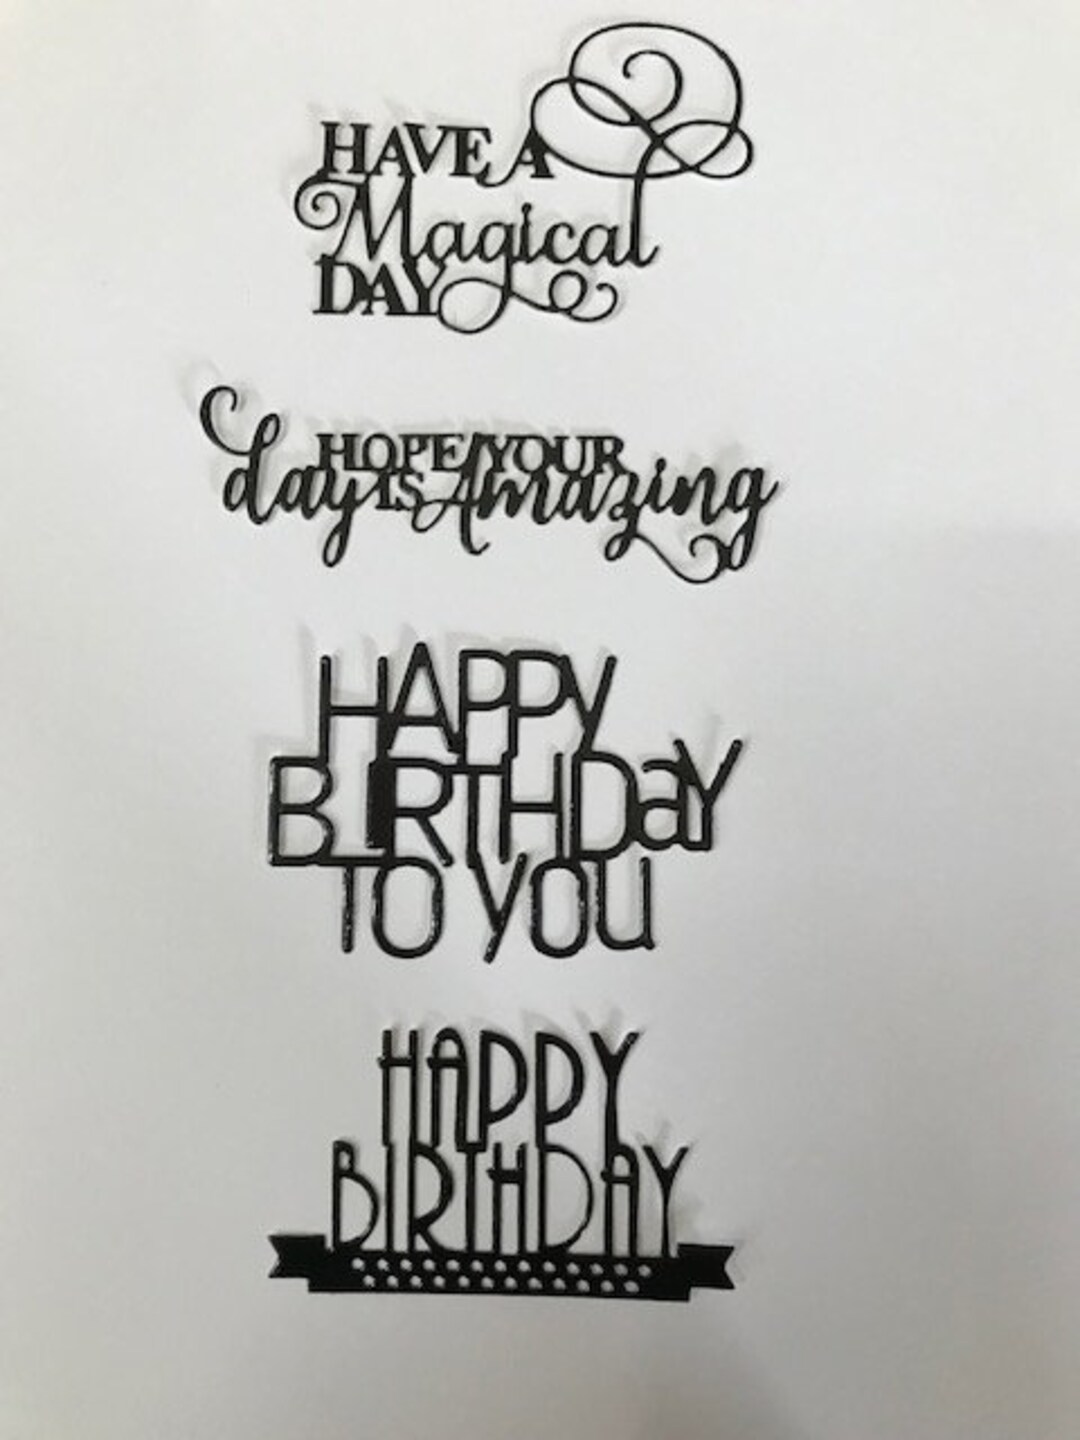 HAVE A
Magical
DAY
HOPE YOUR
day IS Amazing
HAPPY
BIRTHDaY
TO YOU
HAPPY
BIRTHDAY